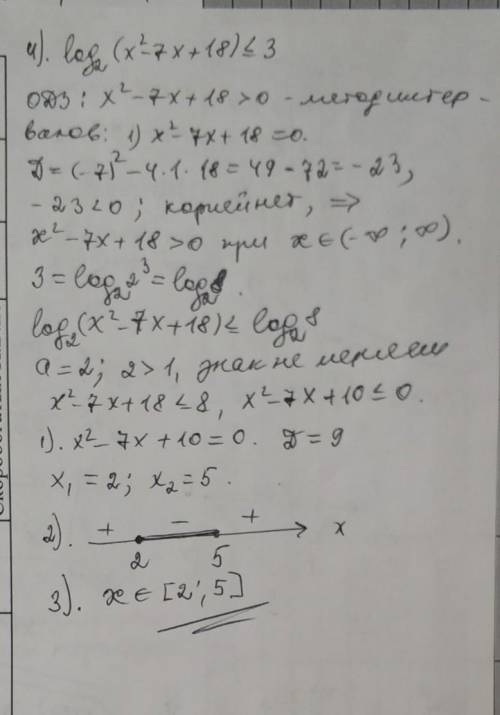 4). log₂(x²-7x+18) ≤ 3
ОДЗ: x²-7x+18 > 0 - метод интер-
валов: 1) x²-7x+18 = 0.
Д = (-7)² - 4·1·18 = 49 - 72 = -23,
-23 < 0; корней нет, ⇒
x²-7x+18 > 0 при x ∈ (-∞; ∞).
3 = log₂2³ = log₂8.
log₂(x²-7x+18) ≤ log₂8
a = 2; 2 > 1, знак не меняем
x²-7x+18 ≤ 8, x²-7x+10 ≤ 0.
1). x²-7x+10 = 0. Д = 9
x₁ = 2; x₂ = 5.
2). + - + x
2 5
3). x ∈ [2; 5]